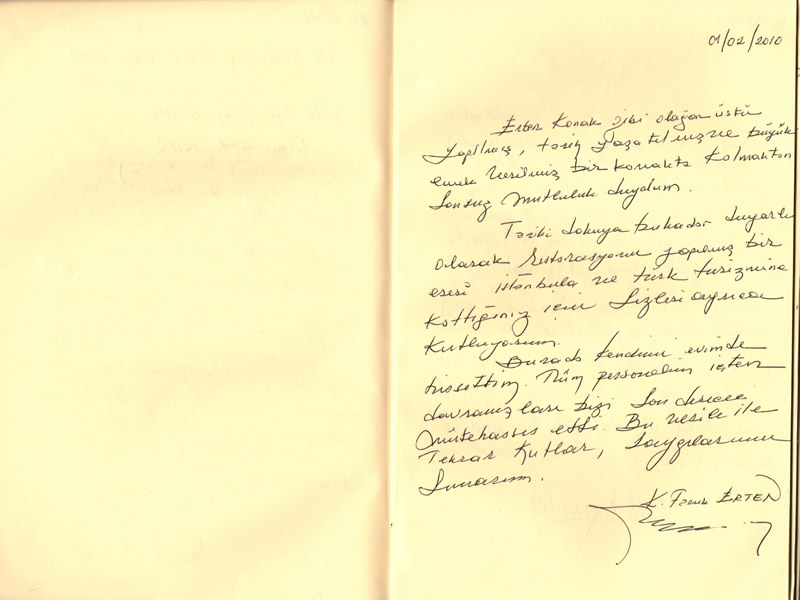 01/02/2010
Erten Konak gibi olağan üstü
yapılmış, tarih yaşatılmış ve büyük
emek verilmiş bir konakta kalmaktan
sonsuz mutluluk duydum.
Tarihi dokuya bukadar duyarlı
olarak restorasyonu yapılmış bir
eseri istanbula ve türk turizmine
kattığınız için sizleri ayrıca
kutluyorum.
Burada kendimi evimde
hissettim. Tüm personelin içten
davranışları bizi son derece
mütehassis etti. Bu vesile ile
Tekrar Kutlar, saygılarımı
sunarım.
K. Faruk ERTEN